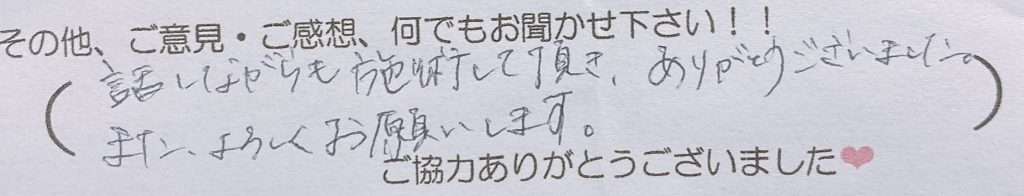 その他、ご意見・ご感想、何でもお聞かせ下さい！！
話しながらも施術して頂き、ありがとうございました。
また、よろしくお願いします。
ご協力ありがとうございました❤